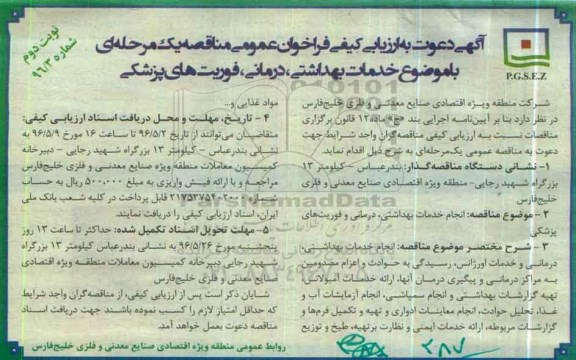 نوبت دوم
شماره ۹۶/۳
آگهی دعوت به ارزیابی کیفی فراخوان عمومی مناقصه یک مرحله‌ای
با موضوع خدمات بهداشتی، درمانی، فوریت های پزشکی
P.G.S.E.Z
شرکت منطقه ویژه اقتصادی صنایع معدنی و فلزی خلیج‌فارس
در نظر دارد بنا بر آیین‌نامه اجرایی بند «ج» ماده ۱۲ قانون برگزاری
مناقصات نسبت به ارزیابی کیفی مناقصه‌گران واجد شرایط جهت
دعوت به مناقصه عمومی یک‌مرحله‌ای به شرح ذیل اقدام نماید.
۱- نشانی دستگاه مناقصه‌گذار: بندرعباس - کیلومتر ۱۳
بزرگراه شهید رجایی- منطقه ویژه اقتصادی صنایع معدنی و فلزی
خلیج‌فارس
۲- موضوع مناقصه: انجام خدمات بهداشتی، درمانی و فوریت‌های
پزشکی
۳- شرح مختصر موضوع مناقصه: انجام خدمات بهداشتی،
درمانی و خدمات اورژانس، رسیدگی به حوادث و اعزام مصدومین
به مراکز درمانی و پیگیری درمان آنها، ارائه خدمات آمبولانس،
تهیه گزارشات بهداشتی و انجام سمپاشی، انجام آزمایشات آب و
غذا، تحلیل حوادث، انجام معاینات ادواری و تهیه و تکمیل فرم‌ها و
گزارشات مربوطه، ارائه خدمات ایمنی و نظارت بر تهیه، طبخ و توزیع
مواد غذایی و..
۴- تاریخ، مهلت و محل دریافت اسناد ارزیابی کیفی:
متقاضیان می‌توانند از تاریخ ۹۶/۵/۲ تا ساعت ۱۶ مورخ ۹۶/۵/۹ به
نشانی بندرعباس - کیلومتر ۱۳ بزرگراه شهید رجایی - دبیرخانه
کمیسیون معاملات منطقه ویژه صنایع معدنی و فلزی خلیج‌فارس
مراجعه و با ارائه فیش واریزی به مبلغ ۵۰۰,۰۰۰ ریال به حساب
قابل پرداخت در کلیه شعب بانک ملی
ایران، اسناد ارزیابی کیفی را دریافت نمایند.
۵- مهلت تحویل اسناد تکمیل شده: حداکثر تا ساعت ۱۳ روز
پنجشنبه مورخ ۹۶/۵/۲۶ به نشانی بندرعباس کیلومتر ۱۳ بزرگراه
شهید رجایی دبیرخانه کمیسیون معاملات منطقه ویژه اقتصادی
صنایع معدنی و فلزی خلیج‌فارس
شایان ذکر است پس از ارزیابی کیفی، از مناقصه‌گران واجد شرایط
که حداقل امتیاز لازم را کسب نموده باشند جهت دریافت اسناد
مناقصه دعوت بعمل خواهد آمد.
روابط عمومی منطقه ویژه اقتصادی صنایع معدنی و فلزی خلیج‌فارس